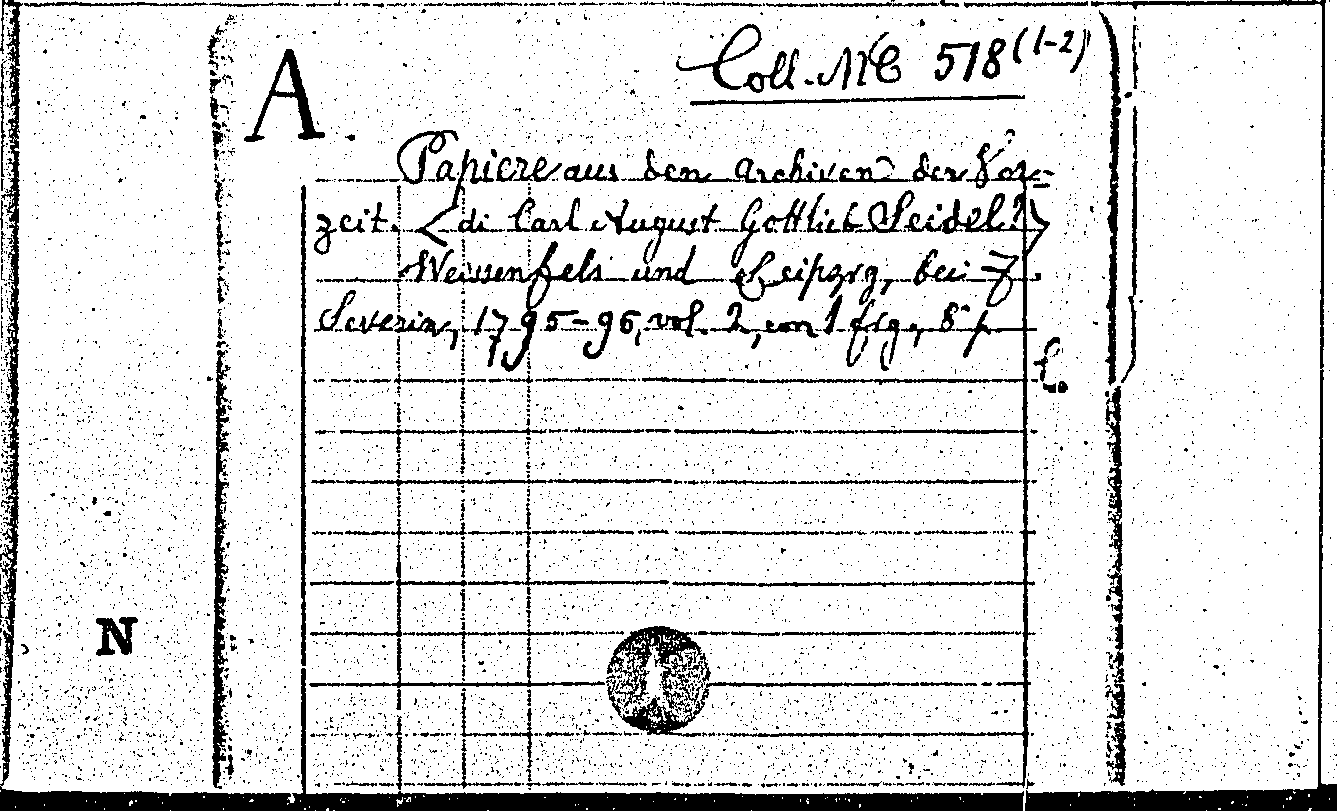 Coll. MC 518 (1-2)
A.
Papiere aus den Archiven der Vor=
zeit. <di Carl August Gottlieb Seidel?>
Weissenfels und Leipzig, bei F.
Severin, 1795-96, vol. 2, con 1 fig., 8° p.
L.
N